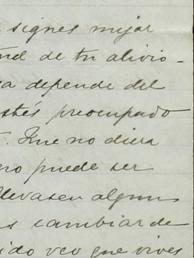 signes mejor
de tu alivio-
depende del
estés preocupado
Que no diera
puede ser
llevasen algun
cambiar de
veo que vives